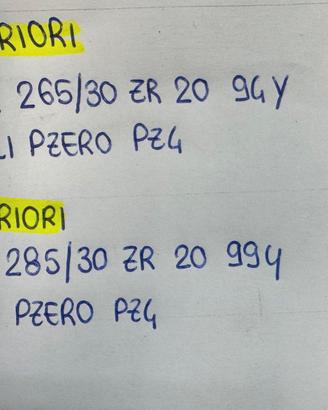 RIORI
265/30 ZR 20 94Y
LI PZERO PZ4
RIORI
285/30 ZR 20 99Y
PZERO PZ4